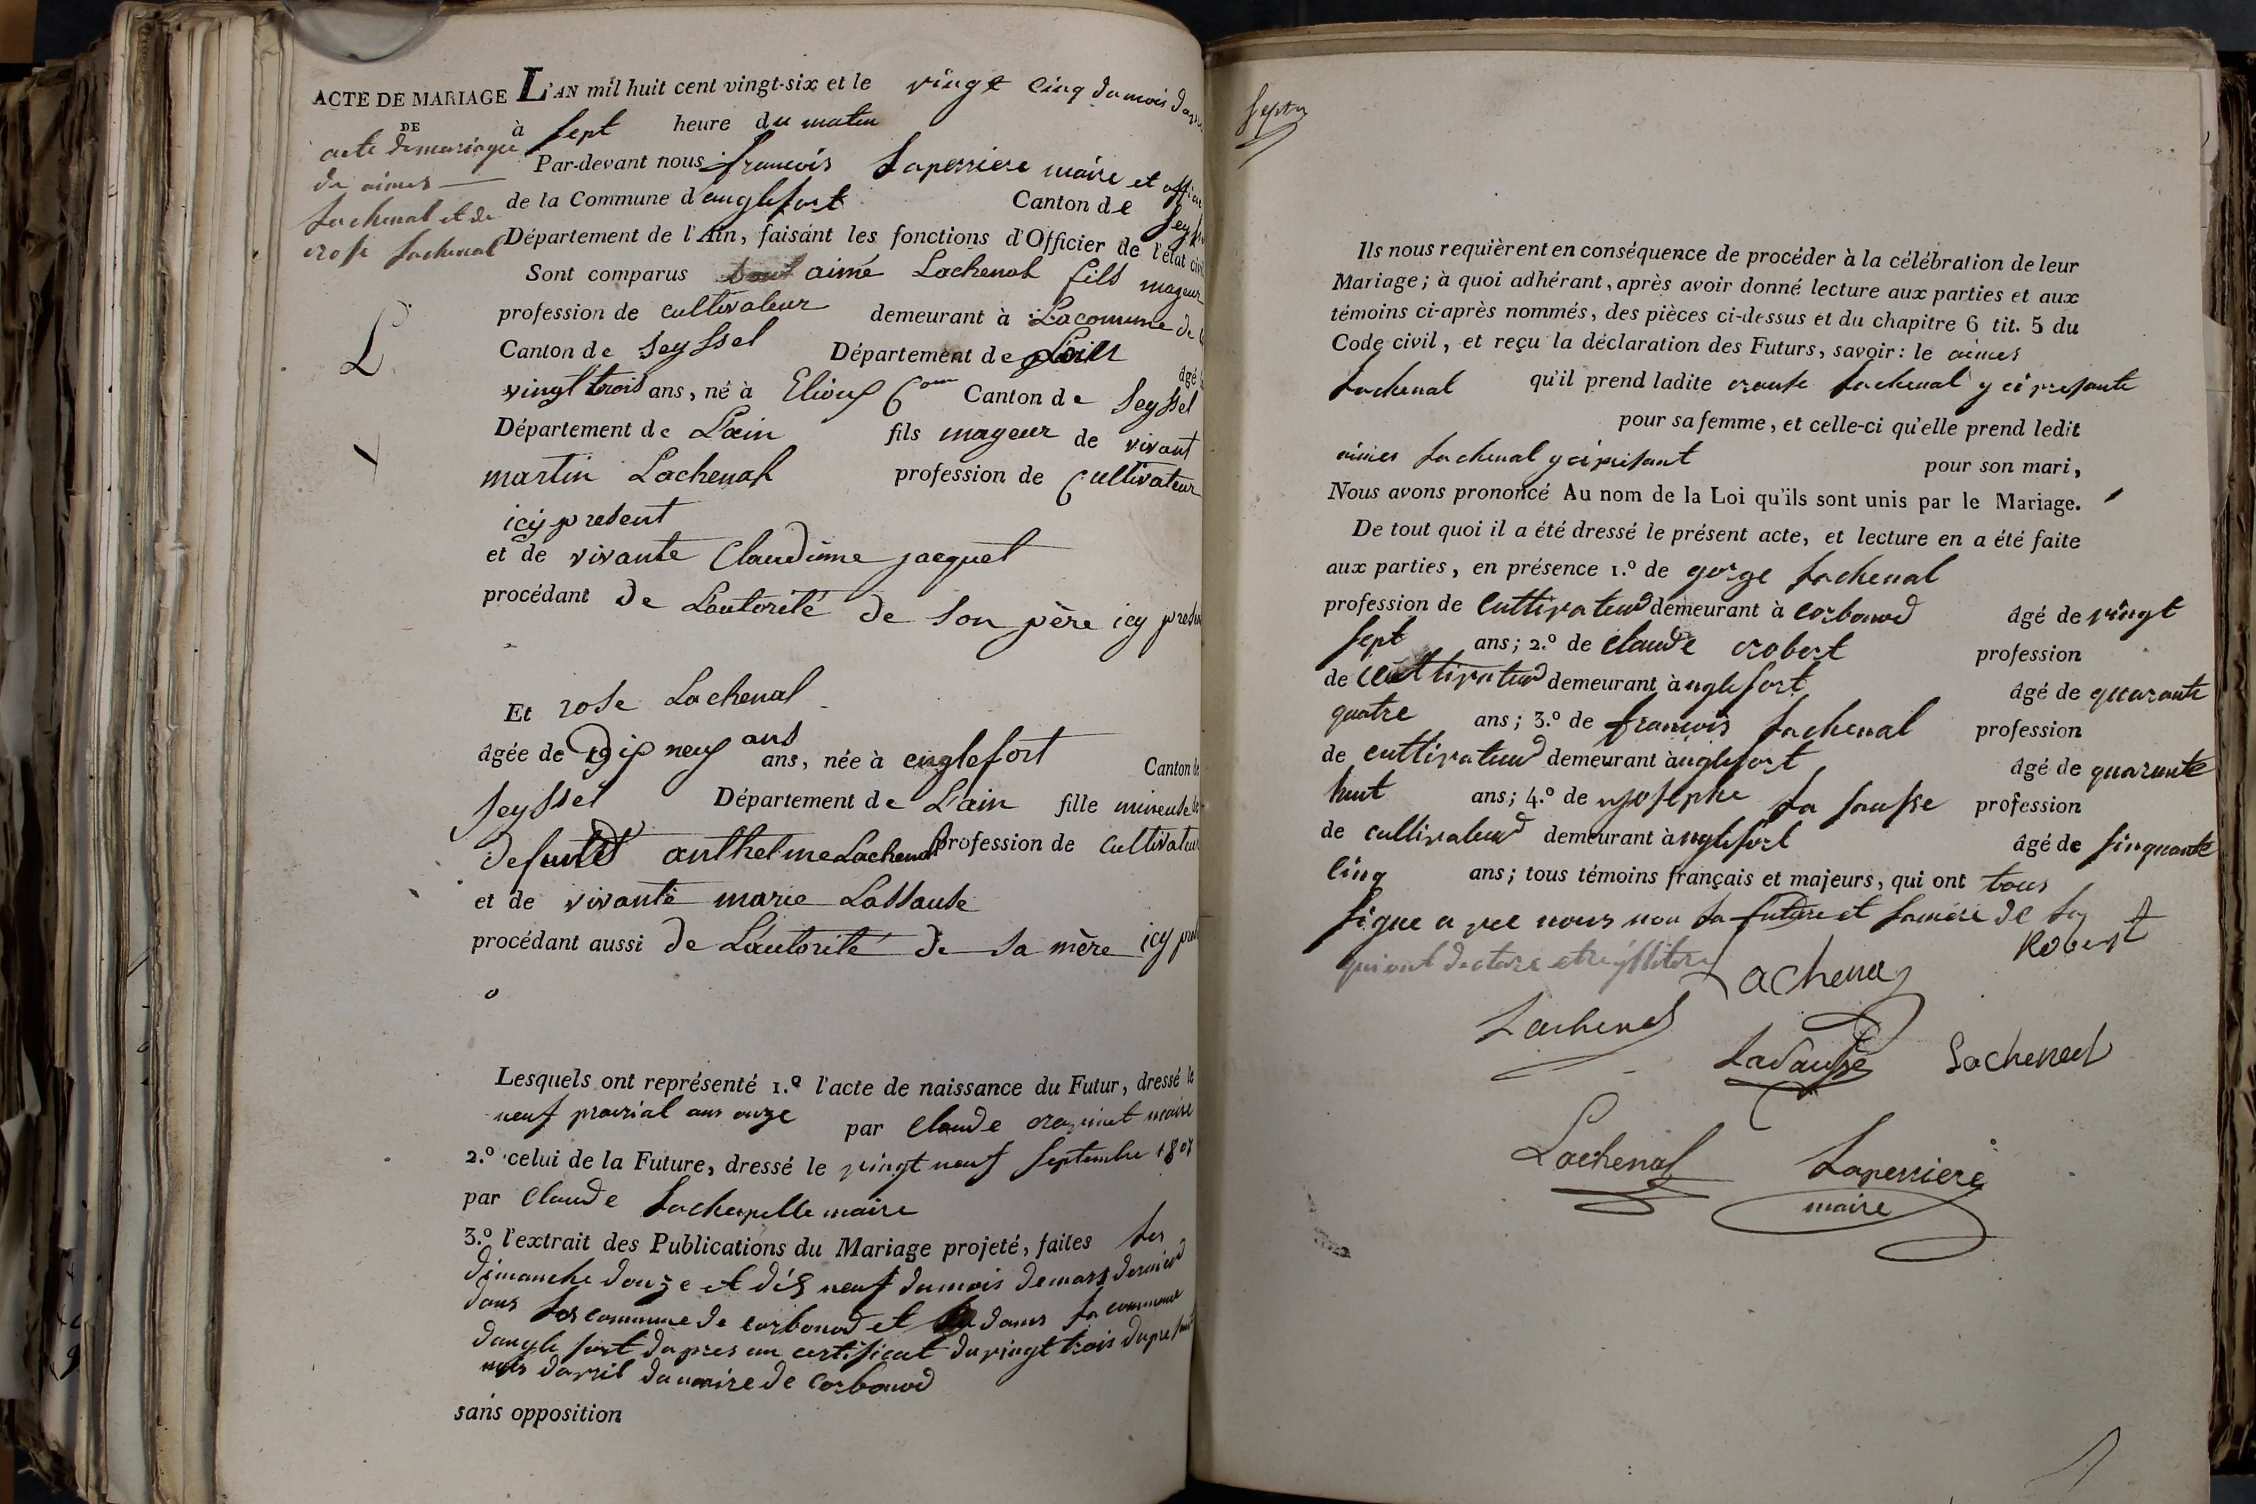 ACTE DE MARIAGE
DE
acte de mariage
de aimes
Lachenal et de
rose Lachenal
L
L'AN mil huit cent vingt-six et le vingt cinq du mois
à sept heure du matin
Par-devant nous francois Laperriere maire et
de la Commune d'anglefort Canton de
Département de l'Ain, faisant les fonctions d'Officier de l'état
Sont comparus aimé Lachenal fils mageur
profession de cultivateur demeurant à Lacomune de
Canton de Seyssel Département de
âgé
vingt trois ans, né à Canton de Seyssel
Département de L'ain fils mageur de vivant
martin Lachenal profession de Cultivateur
icy present
et de vivante Claudinne jacquet
procédant de L'autorité de son père icy
Et rose Lachenal
âgée de Dix neuf ans ans, née à englefort Canton de
Seyssel Département de L'ain fille mineure
defunt anthelme Lachenal profession de Cultivateur
et de vivante marie Lassause
procédant aussi de L'autorité de sa mère icy
Lesquels ont représenté 1.º l'acte de naissance du Futur, dressé le
neuf prairial ans onze par Claude maire
2.º celui de la Future, dressé le vingt neuf septembre
par Claude Lachapelle maire
3.º l'extrait des Publications du Mariage projeté, faites les
dimanche douze et dix neuf du mois de mars dernier
dans commune de corbonod et dans la commune
danglefort dapres un certificat du vingt trois du
mois davril du maire de Corbonod
sans opposition
Ils nous requièrent en conséquence de procéder à la célébration de leur
Mariage; à quoi adhérant, après avoir donné lecture aux parties et aux
témoins ci-après nommés, des pièces ci-dessus et du chapitre 6 tit. 5 du
Code civil, et reçu la déclaration des Futurs, savoir: le aimes
Lachenal qu'il prend ladite Lachenal y ci presante
pour sa femme, et celle-ci qu'elle prend ledit
aimes Lachenal y ci presant pour son mari,
Nous avons prononcé Au nom de la Loi qu'ils sont unis par le Mariage.
De tout quoi il a été dressé le présent acte, et lecture en a été faite
aux parties, en présence 1.º de gorge Lachenal
profession de Cultivateur demeurant à corbonod âgé de vingt
sept ans; 2.º de claude robert profession
de Cultivateur demeurant à nglefort âgé de quarante
quatre ans; 3.º de francois Lachenal profession
de cultivateur demeurant à nglefort âgé de quarante
huit ans; 4.º de josephe La sausse profession
de cultivateur demeurant à nglefort âgé de sinquante
cinq ans; tous témoins français et majeurs, qui ont tous
signe a vec nous non La future et Lamere de
Robert
Lachenal
Lachenal
Lasausse
Lachenal
Lachenal
Laperriere
maire